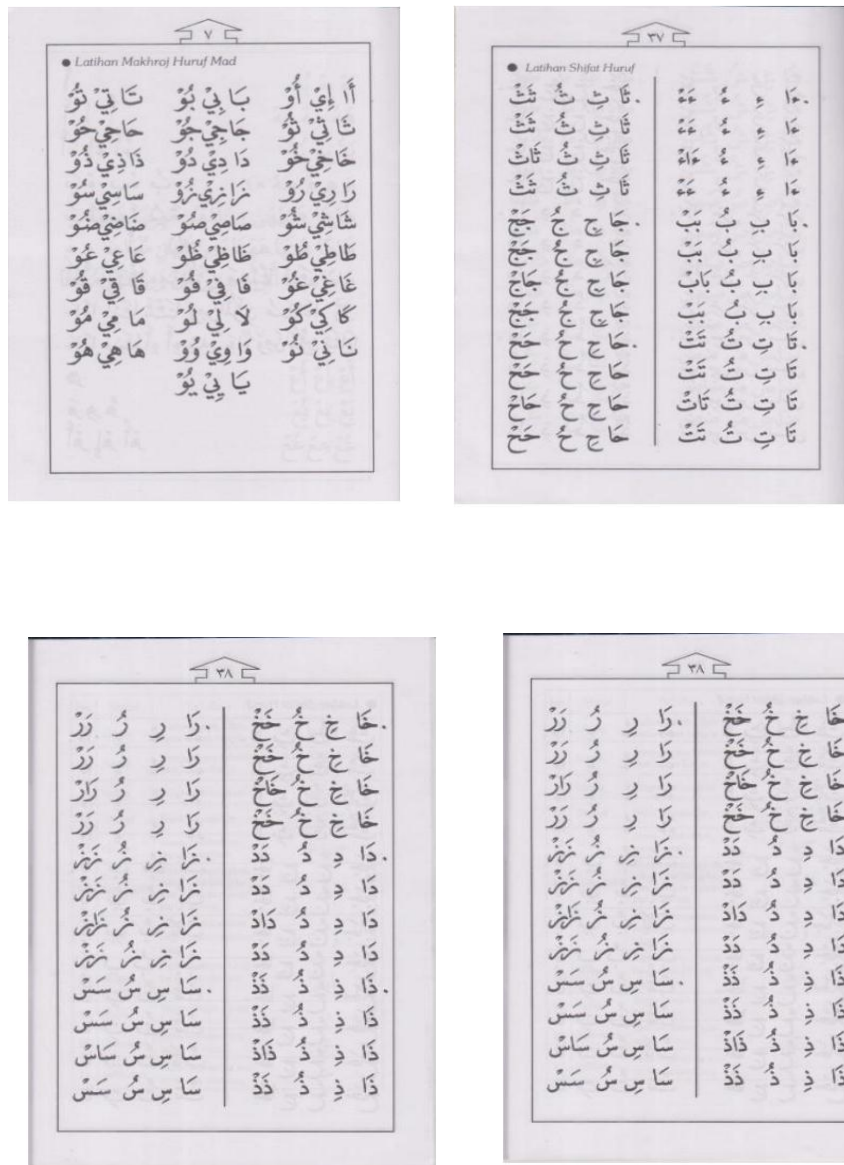 ٧
● Latihan Makhroj Huruf Mad
أَا إِيْ أُوْ بَا بِيْ بُوْ تَا تِيْ تُوْ
ثَا ثِيْ ثُوْ جَا جِيْ جُوْ حَا حِيْ حُوْ
خَا خِيْ خُوْ دَا دِيْ دُوْ ذَا ذِيْ ذُوْ
رَا رِيْ رُوْ زَا زِيْ زُوْ سَا سِيْ سُوْ
شَا شِيْ شُوْ صَا صِيْ صُوْ ضَا ضِيْ ضُوْ
طَا طِيْ طُوْ ظَا ظِيْ ظُوْ عَا عِيْ عُوْ
غَا غِيْ غُوْ فَا فِيْ فُوْ قَا قِيْ قُوْ
كَا كِيْ كُوْ لَا لِيْ لُوْ مَا مِيْ مُوْ
نَا نِيْ نُوْ وَا وِيْ وُوْ هَا هِيْ هُوْ
يَا يِيْ يُوْ
٣٧
● Latihan Shifat Huruf
.ءَا ءِ ءُ ءَءْ
ءَا ءِ ءُ ءَءْ
ءَا ءِ ءُ ءَاءْ
ءَا ءِ ءُ ءَءْ
.بَا بِ بُ بَبْ
بَا بِ بُ بَبْ
بَا بِ بُ بَابْ
بَا بِ بُ بَبْ
.تَا تِ تُ تَتْ
تَا تِ تُ تَتْ
تَا تِ تُ تَاتْ
تَا تِ تُ تَتْ
.ثَا ثِ ثُ ثَثْ
ثَا ثِ ثُ ثَثْ
ثَا ثِ ثُ ثَاثْ
ثَا ثِ ثُ ثَثْ
.جَا جِ جُ جَجْ
جَا جِ جُ جَجْ
جَا جِ جُ جَاجْ
جَا جِ جُ جَجْ
.حَا حِ حُ حَحْ
حَا حِ حُ حَحْ
حَا حِ حُ حَاحْ
حَا حِ حُ حَحْ
٣٨
.خَا خِ خُ خَخْ
خَا خِ خُ خَخْ
خَا خِ خُ خَاخْ
خَا خِ خُ خَخْ
.دَا دِ دُ دَدْ
دَا دِ دُ دَدْ
دَا دِ دُ دَادْ
دَا دِ دُ دَدْ
.ذَا ذِ ذُ ذَذْ
ذَا ذِ ذُ ذَذْ
ذَا ذِ ذُ ذَاذْ
ذَا ذِ ذُ ذَذْ
.رَا رِ رُ رَرْ
رَا رِ رُ رَرْ
رَا رِ رُ رَارْ
رَا رِ رُ رَرْ
.زَا زِ زُ زَزْ
زَا زِ زُ زَزْ
زَا زِ زُ زَازْ
زَا زِ زُ زَزْ
.سَا سِ سُ سَسْ
سَا سِ سُ سَسْ
سَا سِ سُ سَاسْ
سَا سِ سُ سَسْ
٣٨
خَا خِ خُ خَخْ
خَا خِ خُ خَخْ
خَا خِ خُ خَاخْ
خَا خِ خُ خَخْ
دَا دِ دُ دَدْ
دَا دِ دُ دَدْ
دَا دِ دُ دَادْ
دَا دِ دُ دَدْ
ذَا ذِ ذُ ذَذْ
ذَا ذِ ذُ ذَذْ
ذَا ذِ ذُ ذَاذْ
ذَا ذِ ذُ ذَذْ
.رَا رِ رُ رَرْ
رَا رِ رُ رَرْ
رَا رِ رُ رَارْ
رَا رِ رُ رَرْ
.زَا زِ زُ زَزْ
زَا زِ زُ زَزْ
زَا زِ زُ زَازْ
زَا زِ زُ زَزْ
.سَا سِ سُ سَسْ
سَا سِ سُ سَسْ
سَا سِ سُ سَاسْ
سَا سِ سُ سَسْ